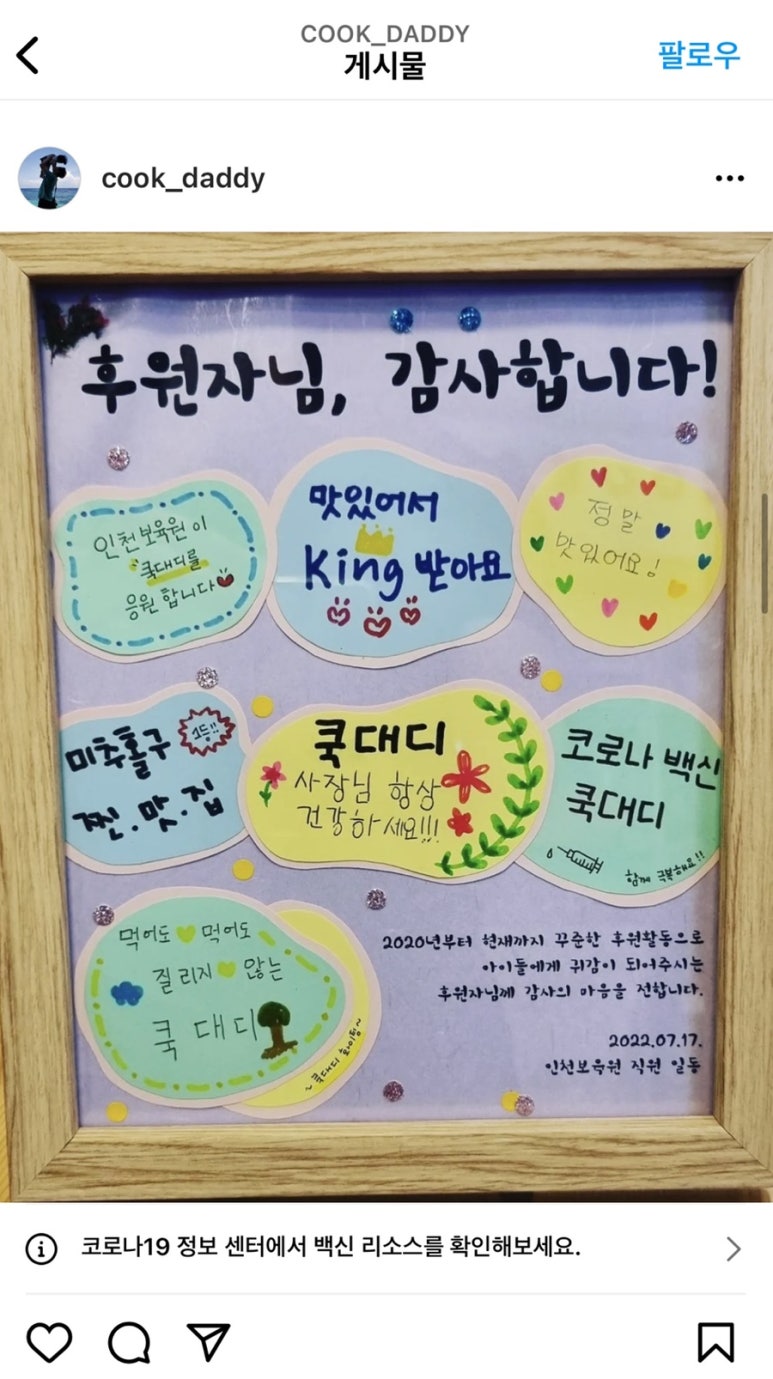 COOK_DADDY
게시물
팔로우
cook_daddy
후원자님, 감사합니다!
인천보육원이
쿡대디를
응원합니다
맛있어서
King 받아요
정말
맛있어요!
미추홀구
1등!!
찐.맛.집
쿡대디
사장님 항상
건강하세요!!!
코로나 백신
쿡대디
함께 극복해요!!
먹어도 먹어도
질리지 않는
쿡대디
~쿡대디 화이팅~
2020년부터 현재까지 꾸준한 후원활동으로
아이들에게 귀감이 되어주시는
후원자님께 감사의 마음을 전합니다.
2022.07.17.
인천보육원 직원 일동
코로나19 정보 센터에서 백신 리소스를 확인해보세요.